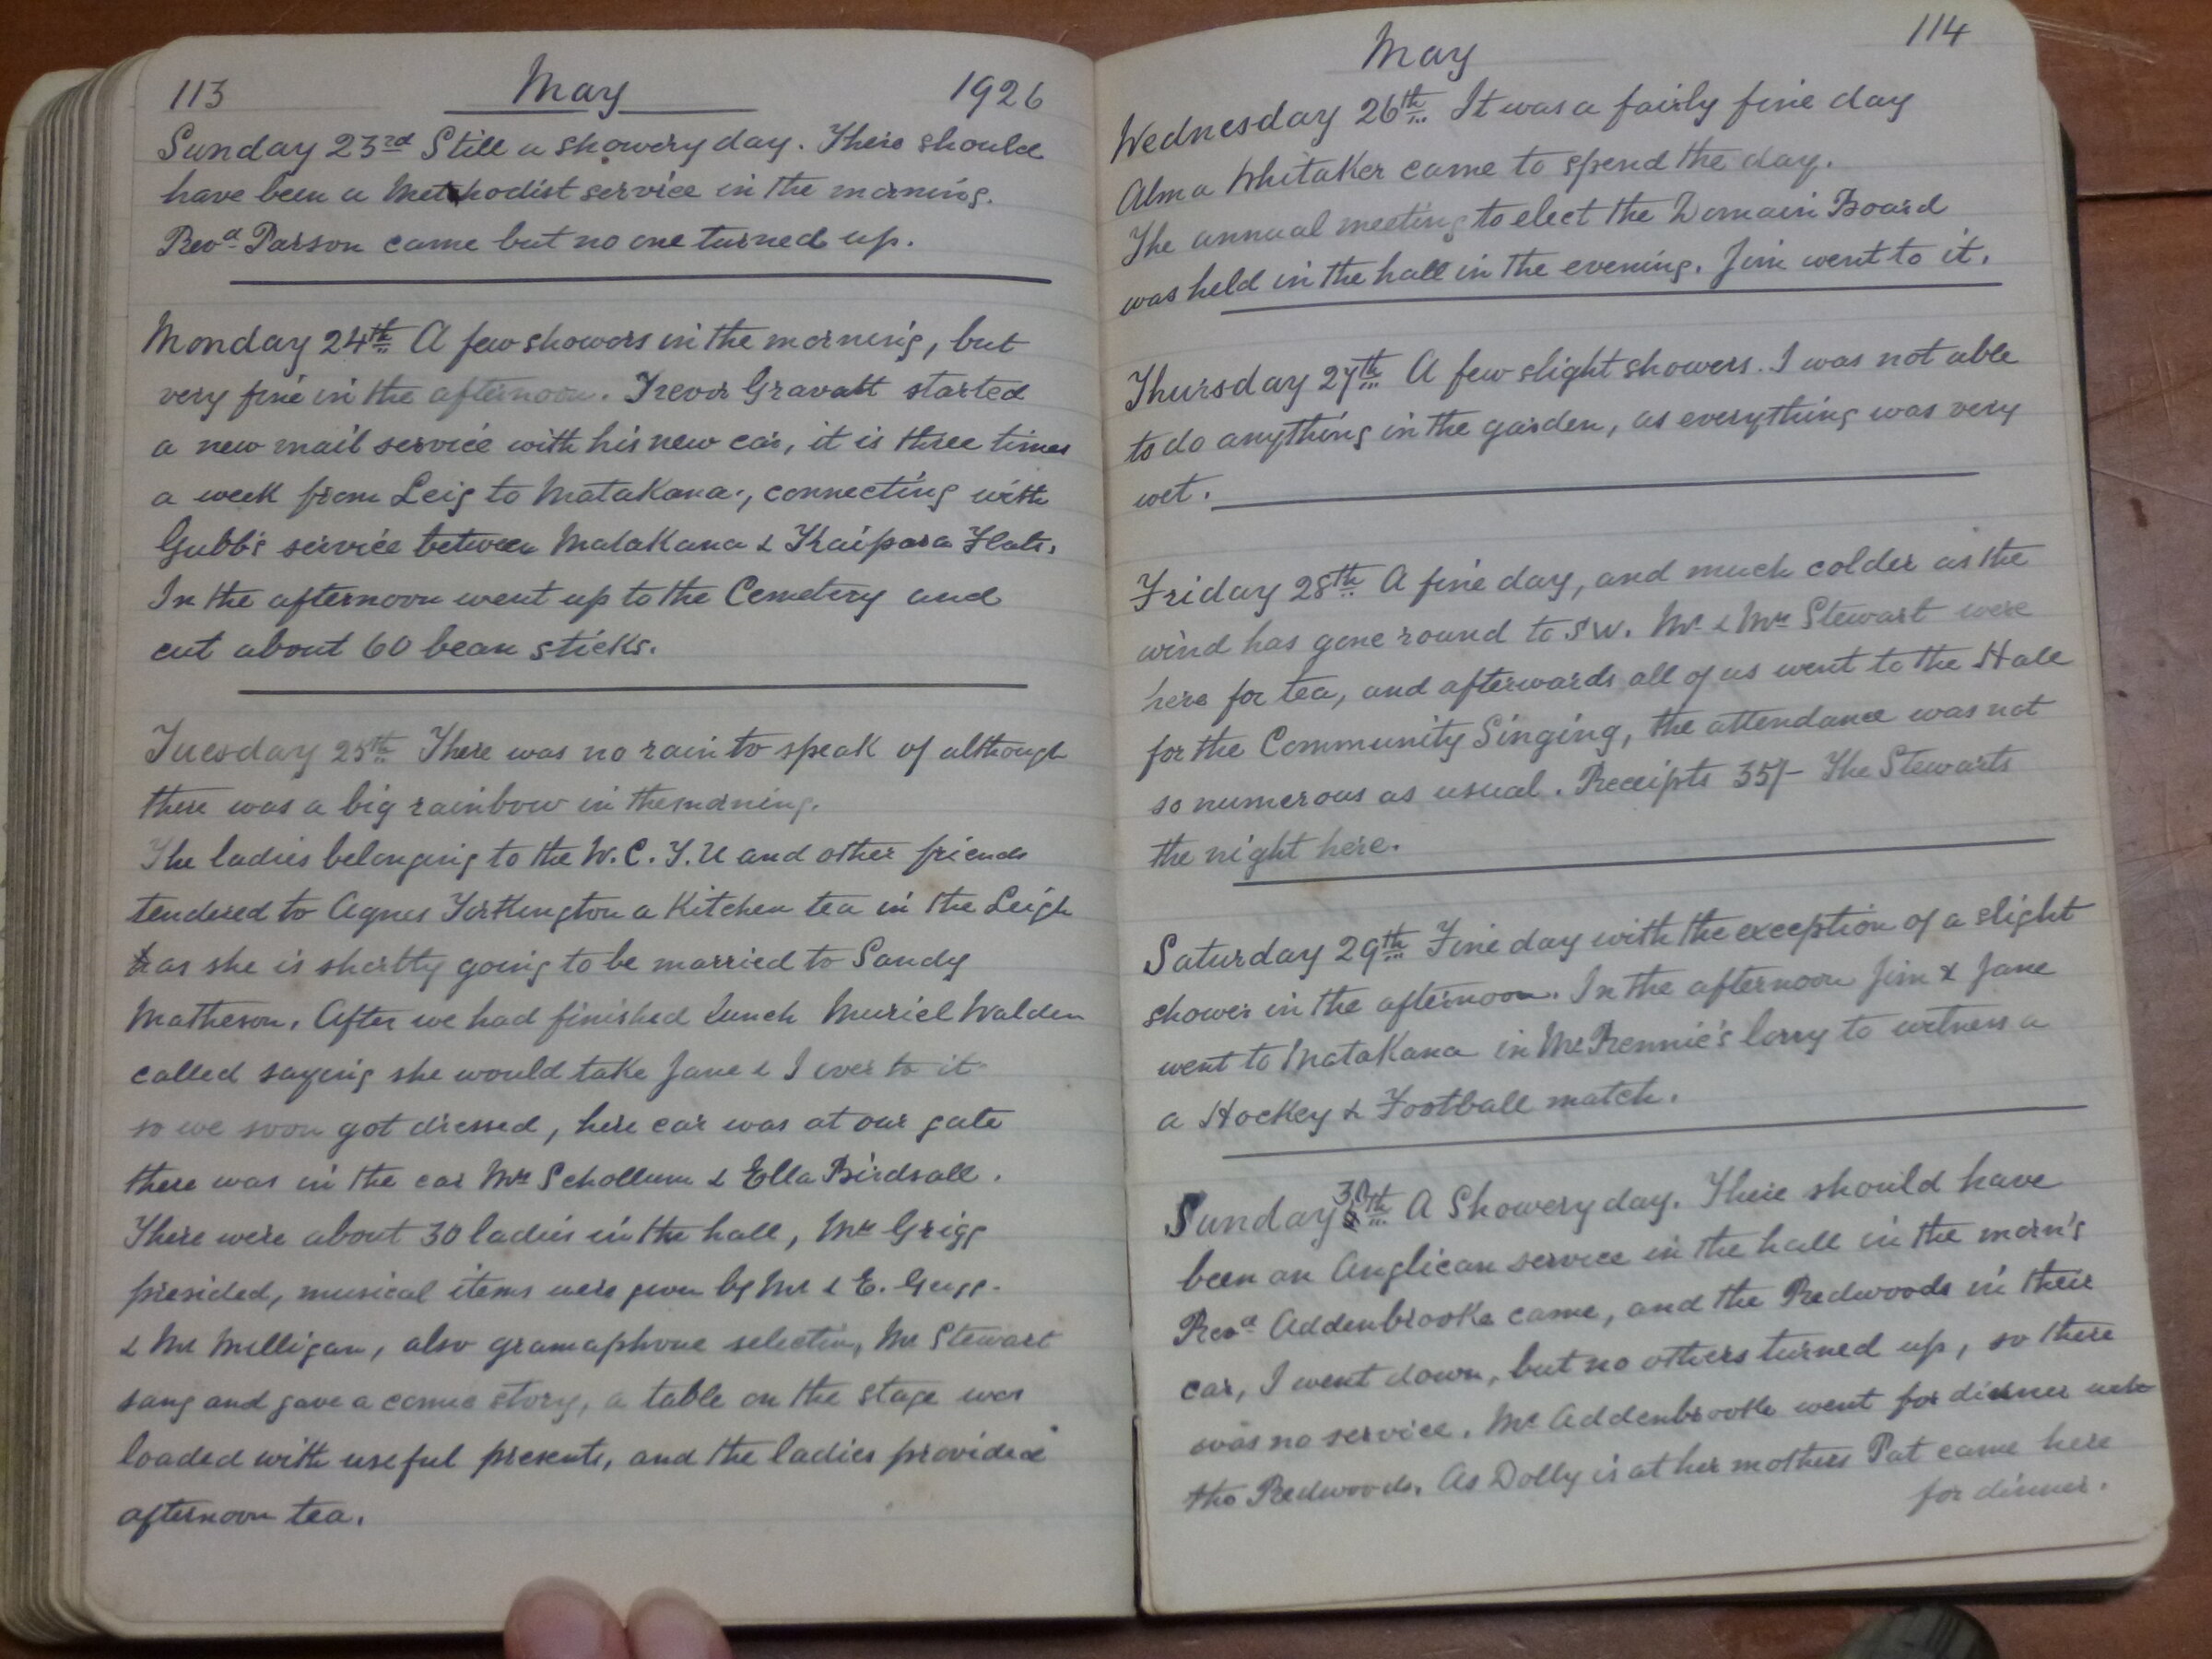 113 May 1926
Sunday 23rd Still a showery day. There should
have been a Methodist service in the morning.
Revd Parson came but no one turned up.
Monday 24th A few showers in the morning, but
very fine in the afternoon. Trevor Gravatt started
a new mail service with his new car, it is three times
a week from Leig to Matakana, connecting with
Gubb's service between Matakana & Kaipara Flats.
In the afternoon went up to the Cemetery and
cut about 60 bean sticks.
Tuesday 25th There was no rain to speak of although
there was a big rainbow in the morning.
The ladies belonging to the W.C.T.U and other friends
tendered to Agnes Torkington a Kitchen tea in the Leigh
as she is shortly going to be married to Sandy
Matheson. After we had finished lunch Muriel Walden
called saying she would take Jane & I over to it
so we soon got dressed, here car was at our gate
there was in the car Mrs Schollum & Ella Birdsall.
There were about 30 ladies in the hall, Mr Grigg
presided, musical items were given by Mr & E. Grigg.
& Mr Milligan, also gramaphone selection, Mr Stewart
sang and gave a comic story, a table on the stage was
loaded with useful presents, and the ladies provided
afternoon tea.
May 114
Wednesday 26th It was a fairly fine day
Alma Whitaker came to spend the day.
The annual meeting to elect the Domain Board
was held in the hall in the evening. Jim went to it.
Thursday 27th A few slight showers. I was not able
to do anything in the garden, as everything was very
wet.
Friday 28th A fine day, and much colder as the
wind has gone round to SW. Mr & Mrs Stewart were
here for tea, and afterwards all of us went to the Hall
for the Community Singing, the attendance was not
so numerous as usual. Receipts 35/- The Stewarts
the night here.
Saturday 29th Fine day with the exception of a slight
shower in the afternoon. In the afternoon Jim & Jane
went to Matakana in Mr Rennie's lorry to witness a
a Hockey & Football match.
Sunday 30th A Showery day. There should have
been an Anglican service in the hall in the morn'g
Revd Addenbrooke came, and the Redwoods in their
car, I went down, but no others turned up, so there
was no service. Mr Addenbrooke went for dinner with
the Redwoods. As Dolly is at her mothers Pat came here
for dinner.